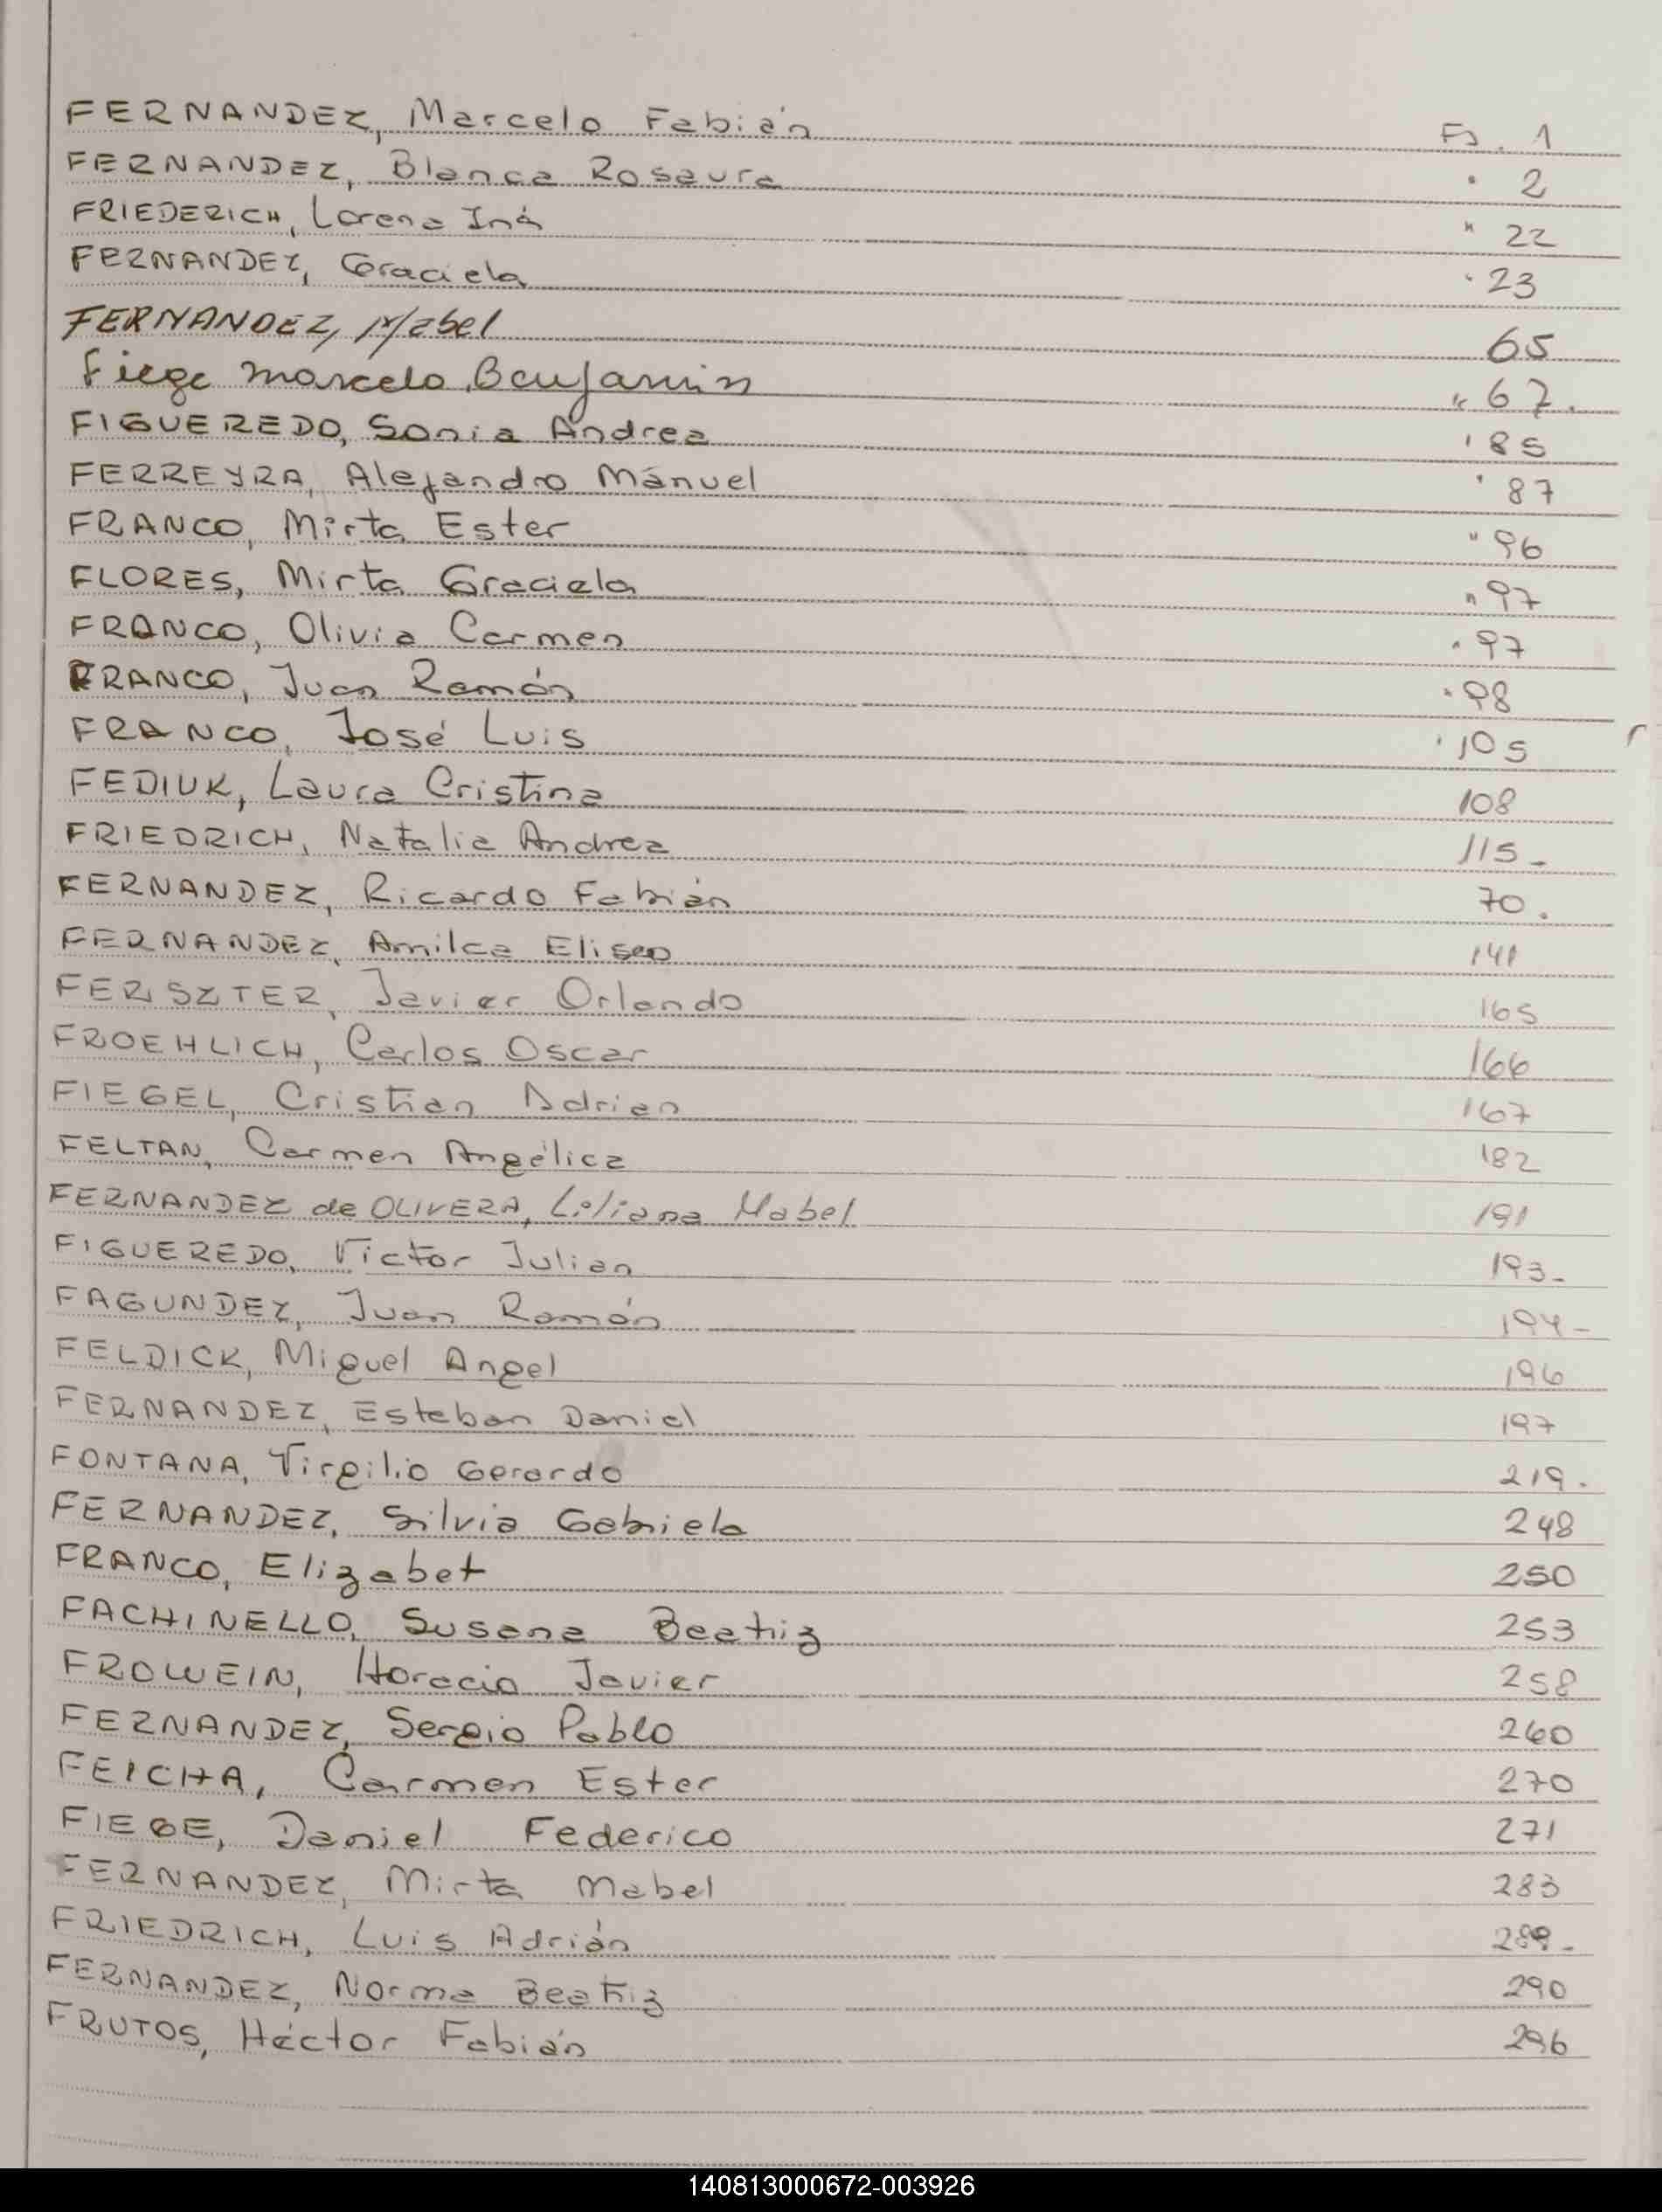 FERNANDEZ, Marcelo Fabián Fs. 1
FERNANDEZ, Blanca Rosaura " 2
FRIEDERICH, Lorena Iná " 22
FERNANDEZ, Graciela " 23
FERNANDEZ, Mabel 65
Fiege Marcelo Benjamin " 67.
FIGUEREDO, Sonia Andrea " 85
FERREYRA, Alejandro Manuel " 87
FRANCO, Mirta Ester " 96
FLORES, Mirta Graciela " 97
FRANCO, Olivia Carmen " 97
FRANCO, Juan Ramón " 98
FRANCO, José Luis " 105
FEDIUK, Laura Cristina 108
FRIEDRICH, Natalia Andrea 115-
FERNANDEZ, Ricardo Fabián 70.
FERNANDEZ, Amilca Eliseo 141
FERSZTER, Javier Orlando 165
FROEHLICH, Carlos Oscar 166
FIEGEL, Cristian Adrian 167
FELTAN, Carmen Angélica 182
FERNANDEZ de OLIVERA, Liliana Mabel 191
FIGUEREDO, Victor Julian 193-
FAGUNDEZ, Juan Ramón 194-
FELDICK, Miguel Angel 196
FERNANDEZ, Esteban Daniel 197
FONTANA, Virgilio Gerardo 219.
FERNANDEZ, Silvia Gabriela 248
FRANCO, Elizabet 250
FACHINELLO, Susana Beatriz 253
FROWEIN, Horacio Javier 258
FERNANDEZ, Sergio Pablo 260
FEICHA, Carmen Ester 270
FIEGE, Daniel Federico 271
FERNANDEZ, Mirta Mabel 283
FRIEDRICH, Luis Adrián
FERNANDEZ, Norma Beatriz 290
FRUTOS, Héctor Fabián 296
140813000672-003926